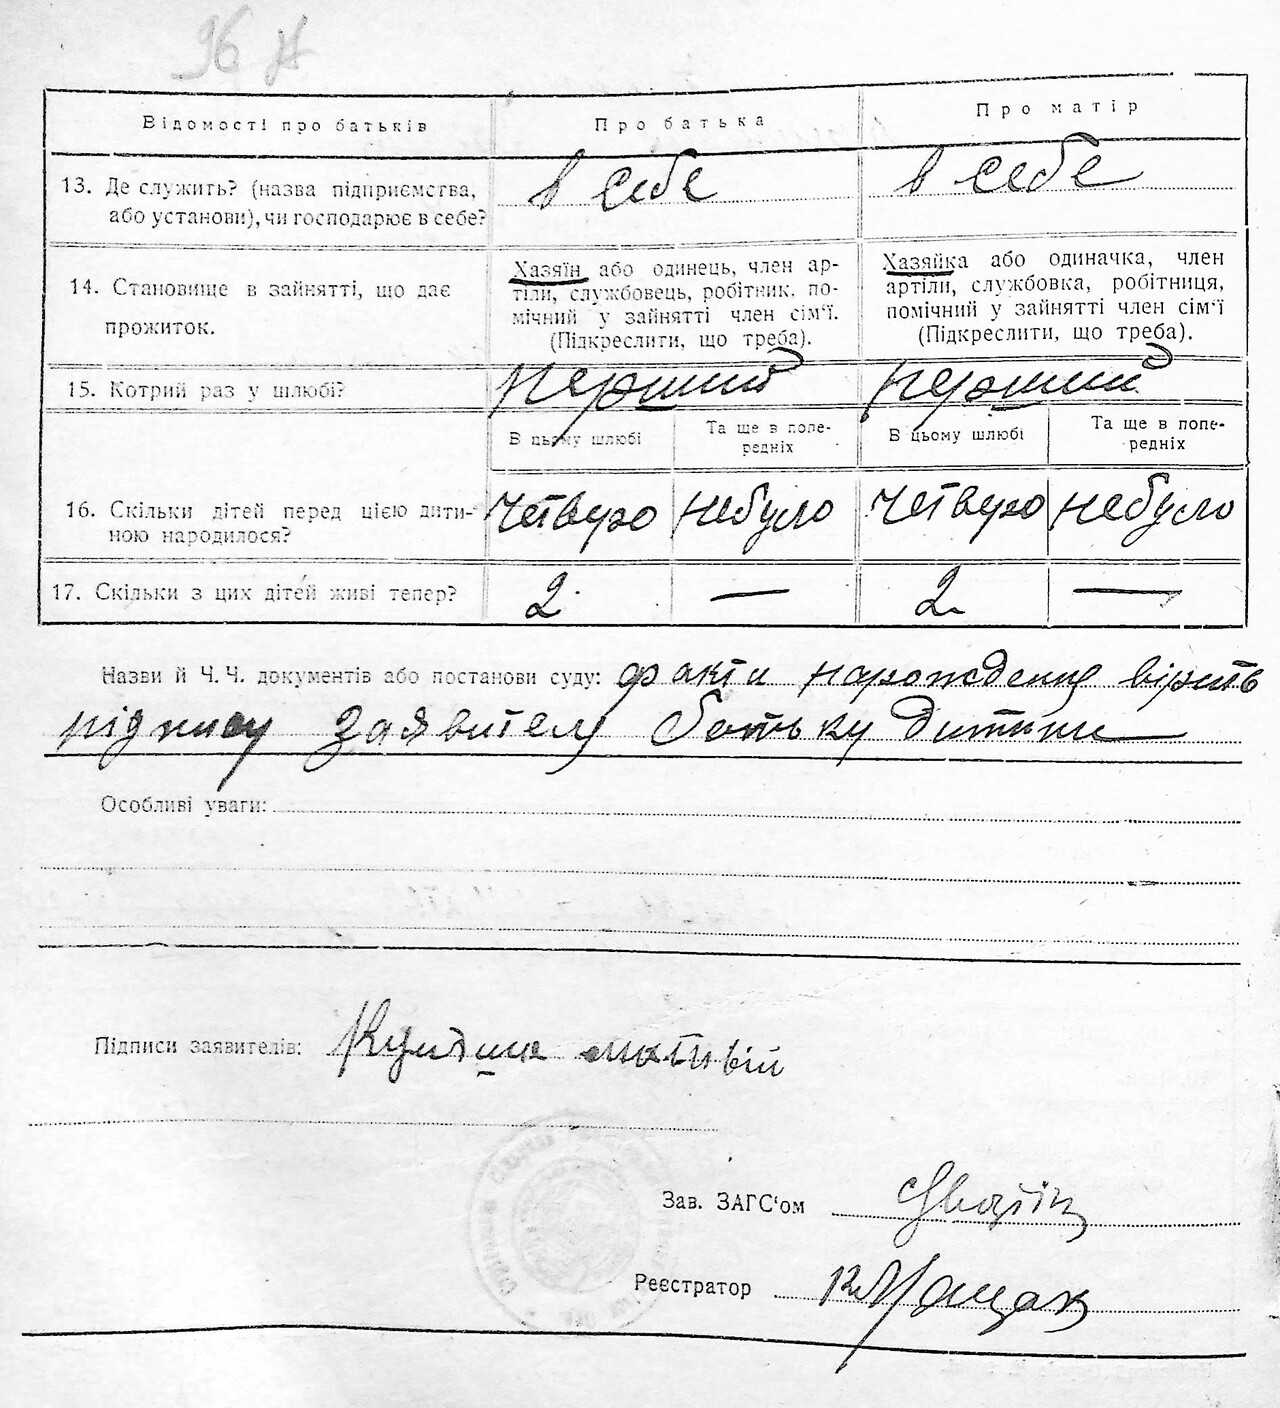 96
Відомості про батьків
Про батька
Про матір
13. Де служить? (назва підприємства,
або установи), чи господарює в себе?
в себе
в себе
14. Становище в зайнятті, що дає
прожиток.
Хазяїн або одинець, член ар-
тіли, службовець, робітник, по-
мічний у зайнятті член сім'ї.
(Підкреслити, що треба).
Хазяйка або одиначка, член
артіли, службовка, робітниця,
помічний у зайнятті член сім'ї
(Підкреслити, що треба).
15. Котрий раз у шлюбі?
перший
перший
В цьому шлюбі
Та ще в попе-
редніх
В цьому шлюбі
Та ще в попе-
редніх
16. Скільки дітей перед цією дити-
ною народилося?
четверо
небуло
четверо
небуло
17. Скільки з цих дітей живі тепер?
2
—
2
—
Назви й Ч.Ч. документів або постанови суду: факти народження вірить
підпису заявителя батьку дитини
Особливі уваги:
Підписи заявителів: матвій
Зав. ЗАГС'ом
Реєстратор